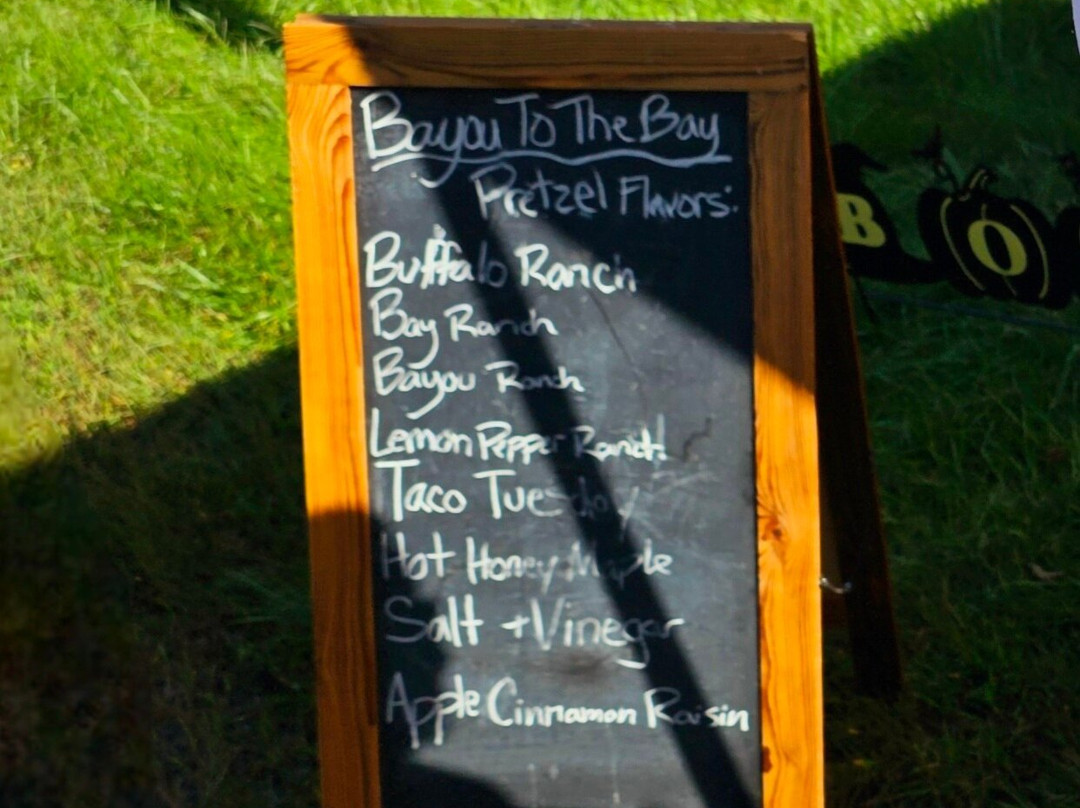 Bayou To The Bay
Pretzel Flavors:
Buffalo Ranch
Bay Ranch
Bayou Ranch
Lemon Pepper Ranch
Taco Tuesday
Hot Honey Maple
Salt + Vinegar
Apple Cinnamon Raisin
B O